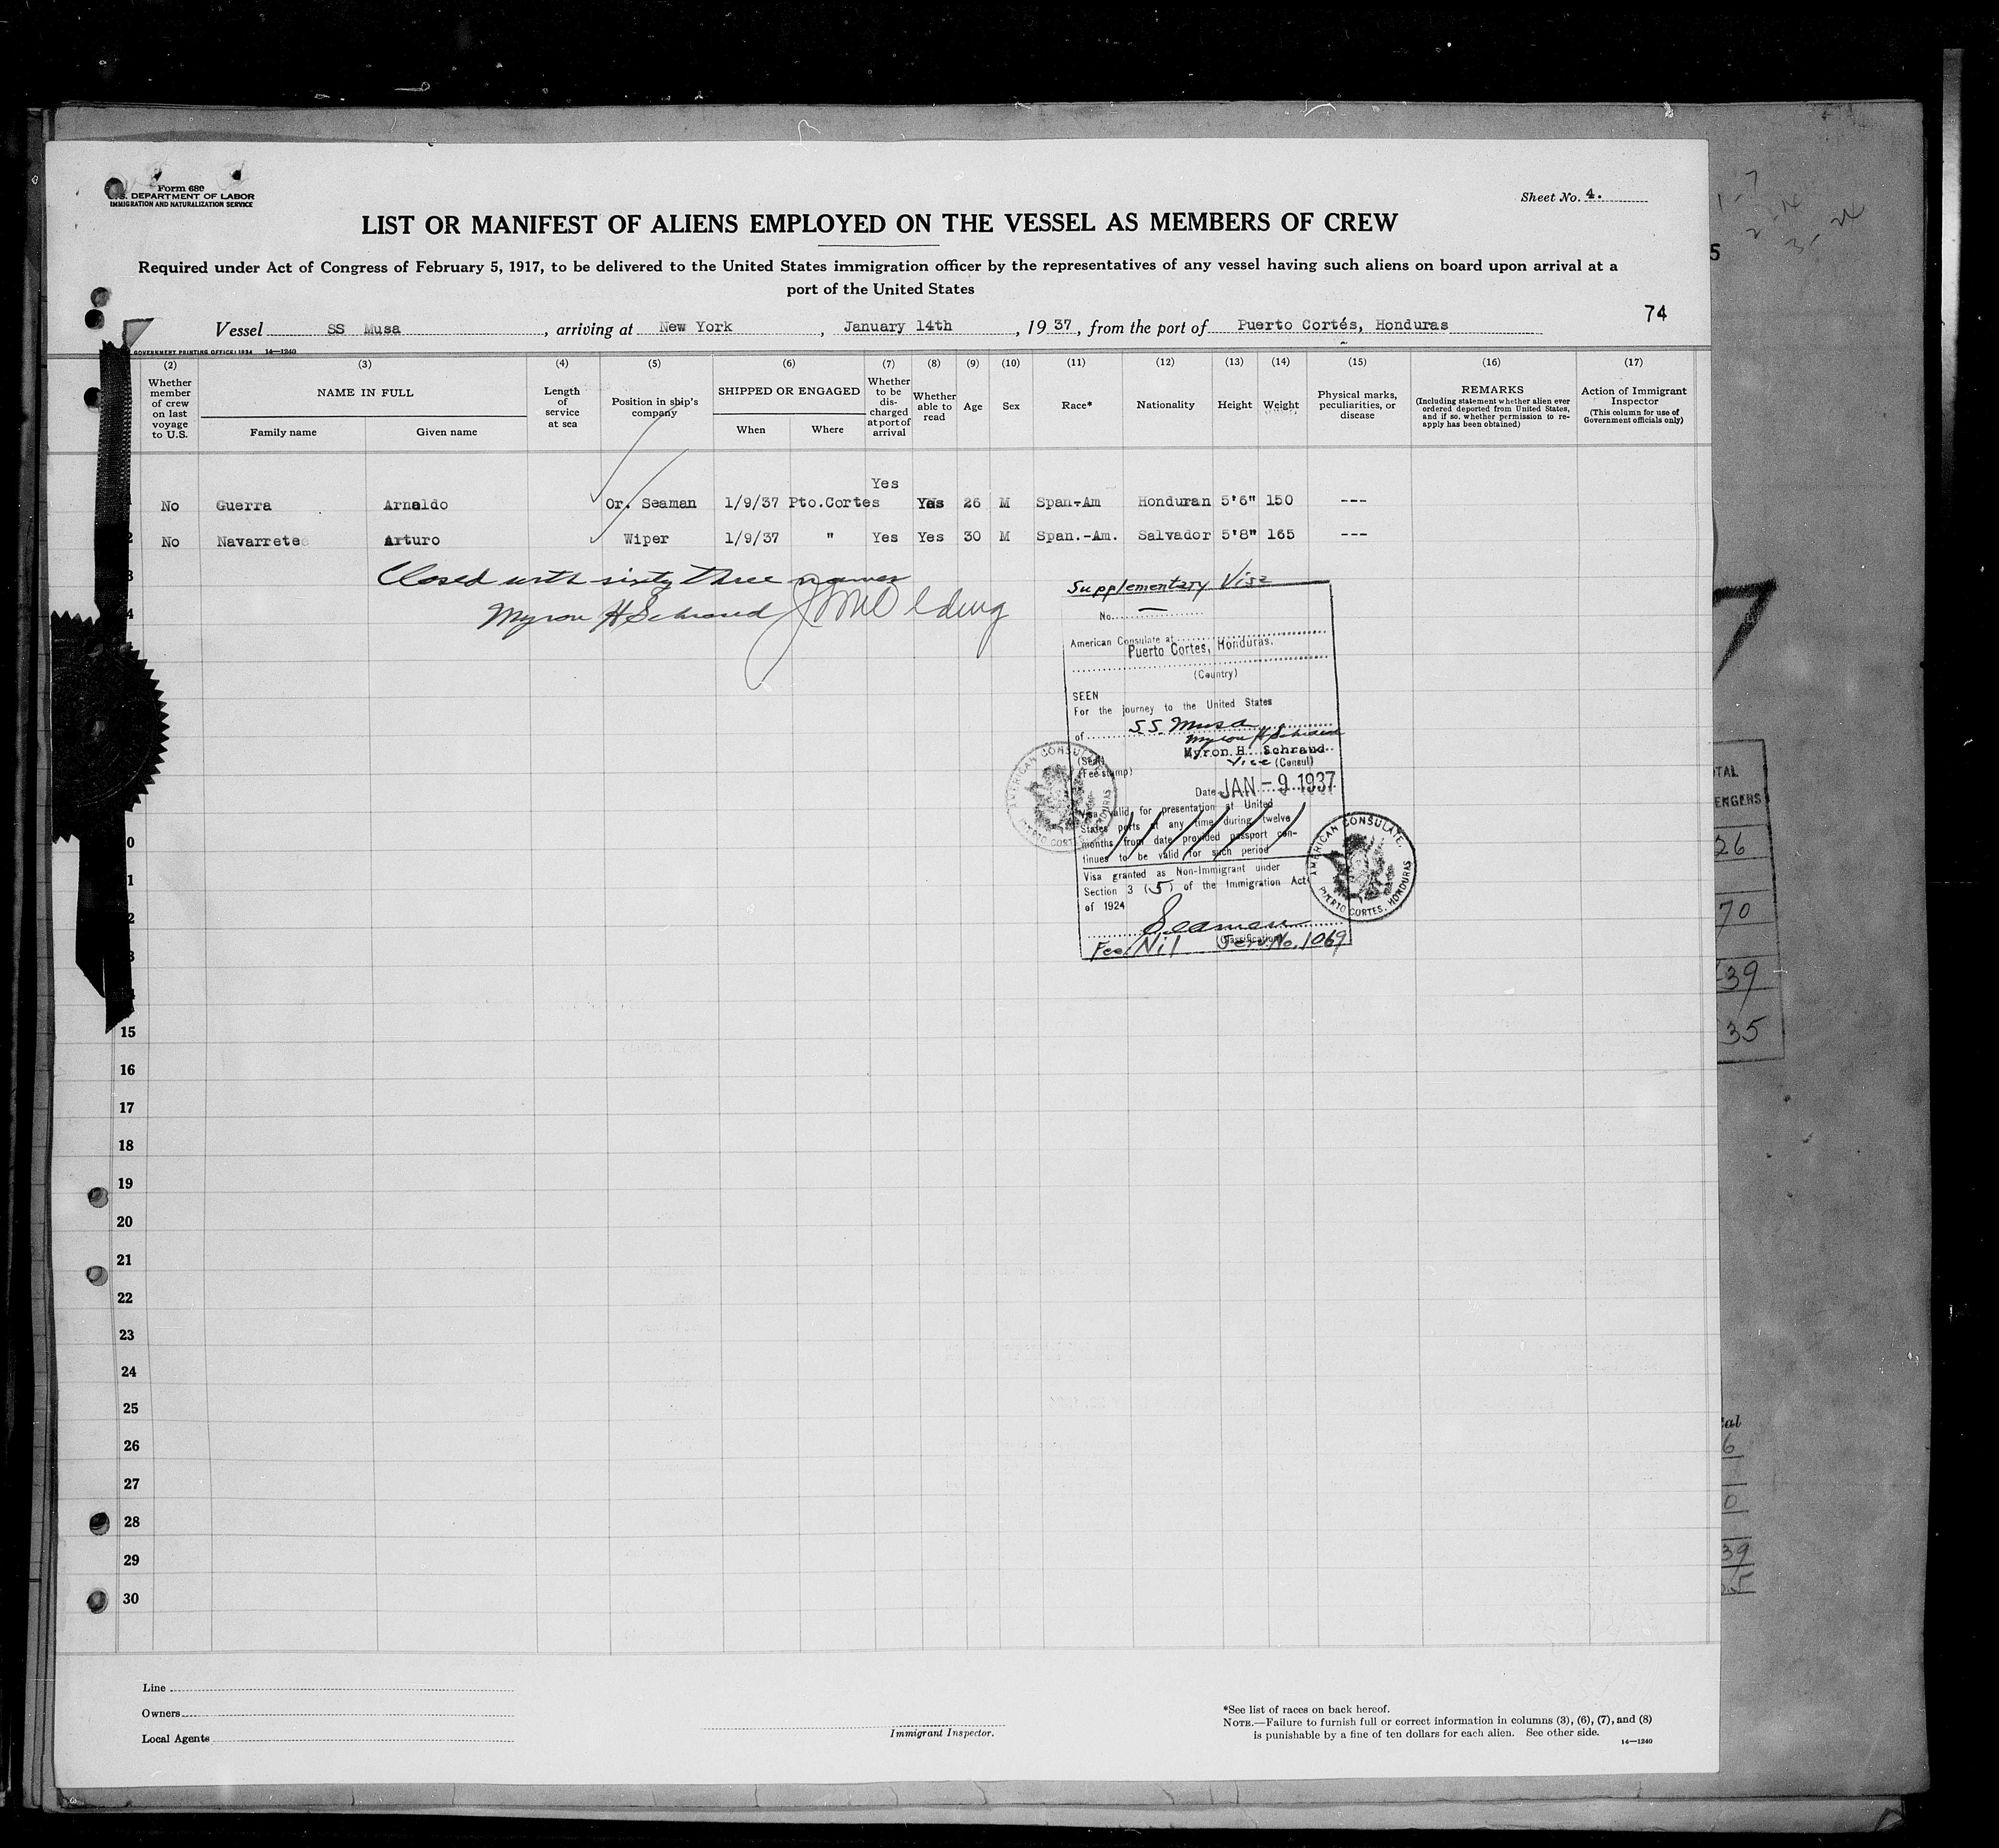 Form 680
U.S. DEPARTMENT OF LABOR
IMMIGRATION AND NATURALIZATION SERVICE
Sheet No. 4.
LIST OR MANIFEST OF ALIENS EMPLOYED ON THE VESSEL AS MEMBERS OF CREW
Required under Act of Congress of February 5, 1917, to be delivered to the United States immigration officer by the representatives of any vessel having such aliens on board upon arrival at a
port of the United States
74
Vessel SS Musa, arriving at New York, January 14th, 1937, from the port of Puerto Cortés, Honduras
GOVERNMENT PRINTING OFFICE: 1934 14—1240
(2) (3) (4) (5) (6) (7) (8) (9) (10) (11) (12) (13) (14) (15) (16) (17)
Whether member of crew on last voyage to U.S.
NAME IN FULL
Family name Given name
Length of service at sea
Position in ship's company
SHIPPED OR ENGAGED
When Where
Whether to be discharged at port of arrival
Whether able to read
Age
Sex
Race*
Nationality
Height
Weight
Physical marks, peculiarities, or disease
REMARKS
(Including statement whether alien ever ordered deported from United States, and if so, whether permission to reapply has been obtained)
Action of Immigrant Inspector
(This column for use of Government officials only)
Yes
No Guerra Arnaldo Or. Seaman 1/9/37 Pto.Cortes Yes 26 M Span-Am Honduran 5'6" 150 ---
2 No Navarrete Arturo Wiper 1/9/37 " Yes Yes 30 M Span.-Am. Salvador 5'8" 165 ---
3
Closed with sixty three names
4
Myron H Schraud
Supplementary Visa
No. —
American Consulate at
Puerto Cortes, Honduras.
(Country)
SEEN
For the journey to the United States
of SS. Musa
Myron H Schraud
Myron H. Schraud
(Seal) Vice (Consul)
(Fee stamp)
Date JAN - 9 1937
Visa valid for presentation at United
States ports at any time during twelve
months from date provided passport con-
tinues to be valid for such period
Visa granted as Non-Immigrant under
Section 3 (5) of the Immigration Act
of 1924
Seamen
(Classification)
Fee Nil Serv. No. 1069
AMERICAN CONSULATE
PUERTO CORTES, HONDURAS
AMERICAN CONSULATE,
PUERTO CORTES, HONDURAS
0
1
2
3
4
15
16
17
18
19
20
21
22
23
24
25
26
27
28
29
30
Line
Owners
Local Agents
Immigrant Inspector.
*See list of races on back hereof.
NOTE.—Failure to furnish full or correct information in columns (3), (6), (7), and (8)
is punishable by a fine of ten dollars for each alien. See other side.
14—1240
5
7
TAL
ENGERS
26
70
39
35
tal
6
0
39